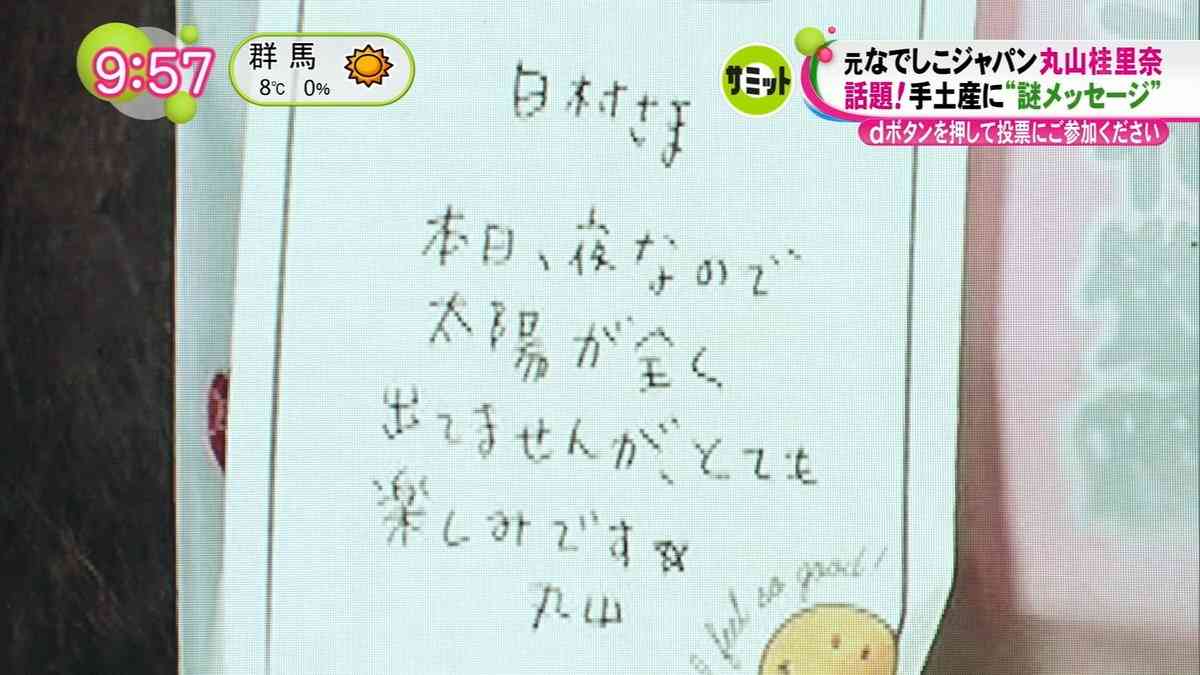 9:57
群馬
8℃ 0%
サミット
元なでしこジャパン丸山桂里奈
話題!手土産に“謎メッセージ”
dボタンを押して投票にご参加ください
白村さま
本日、夜なので
太陽が全く
出てませんが、とても
楽しみです☆
丸山
I feel so good!